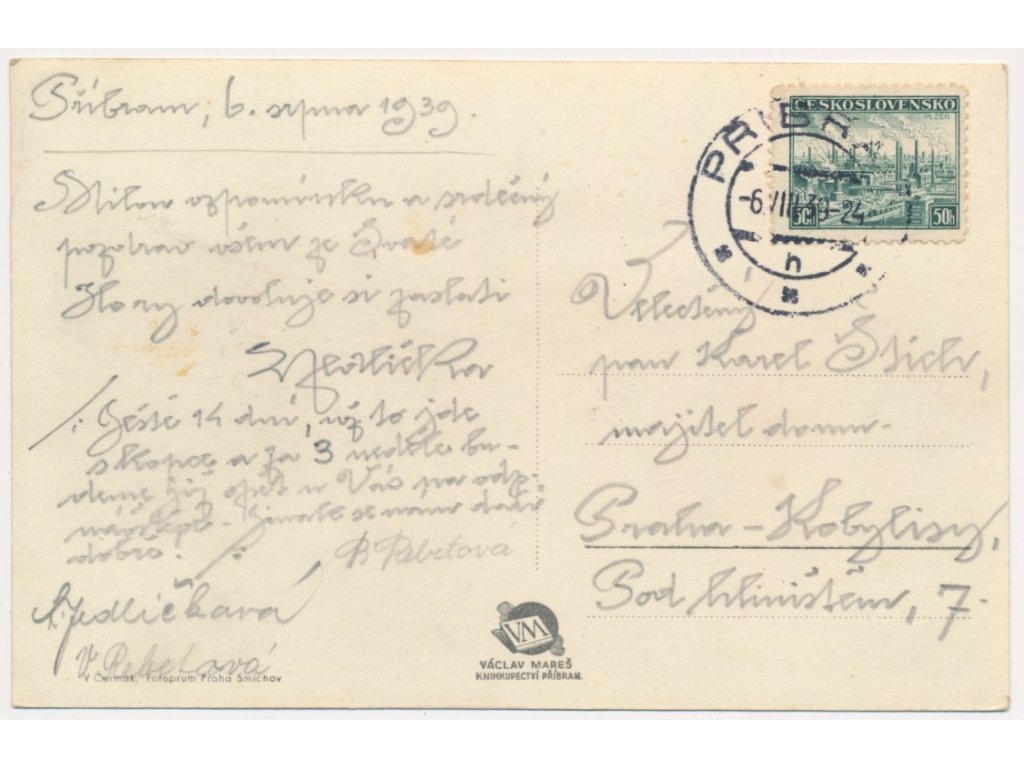 Příbram, 6. srpna 1939.
Milou vzpomínku a srdečný
pozdrav všem ze Svaté
Hory dovoluje si zaslati
Jedlička
/: Ještě 14 dní, už to jde
s kopce a za 3 neděle bu-
deme již opět u Vás na odp.
Jinak se nám daří
dobře! :/
B Rebetová
Jedličková
V Rebetová
Čermák, Fotoprum Praha Smíchov
VM
VÁCLAV MAREŠ
KNIHKUPECTVÍ PŘÍBRAM.
ČESKOSLOVENSKO
PLZEŇ
50h 50h
PŘÍBR
-6.VIII.39-24
h
Velectěný
pan Karel Štich,
majitel domu.
Praha-Kobylisy,
Pod hliništěm, 7.